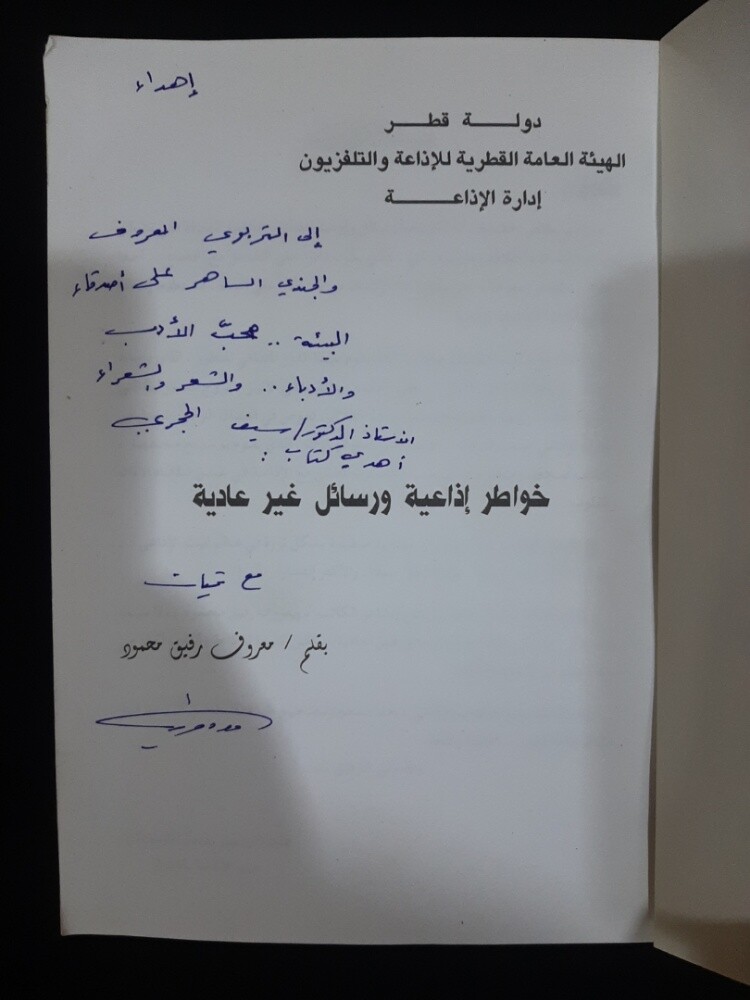 إهداء
دولـــــة قطـــر
الهيئة العامة القطرية للإذاعة والتلفزيون
إدارة الإذاعـــــــــة
إلى التربوي المعروف
والجندي الساهر على أصدقاء
البيئة .. محبّ الأدب
والأدباء .. والشعر والشعراء
الأستاذ الدكتور/ سيف الحجري
أهدي كتاب :
خواطر إذاعية ورسائل غير عادية
مع تحيات
بقلم / معروف رفيق محمود